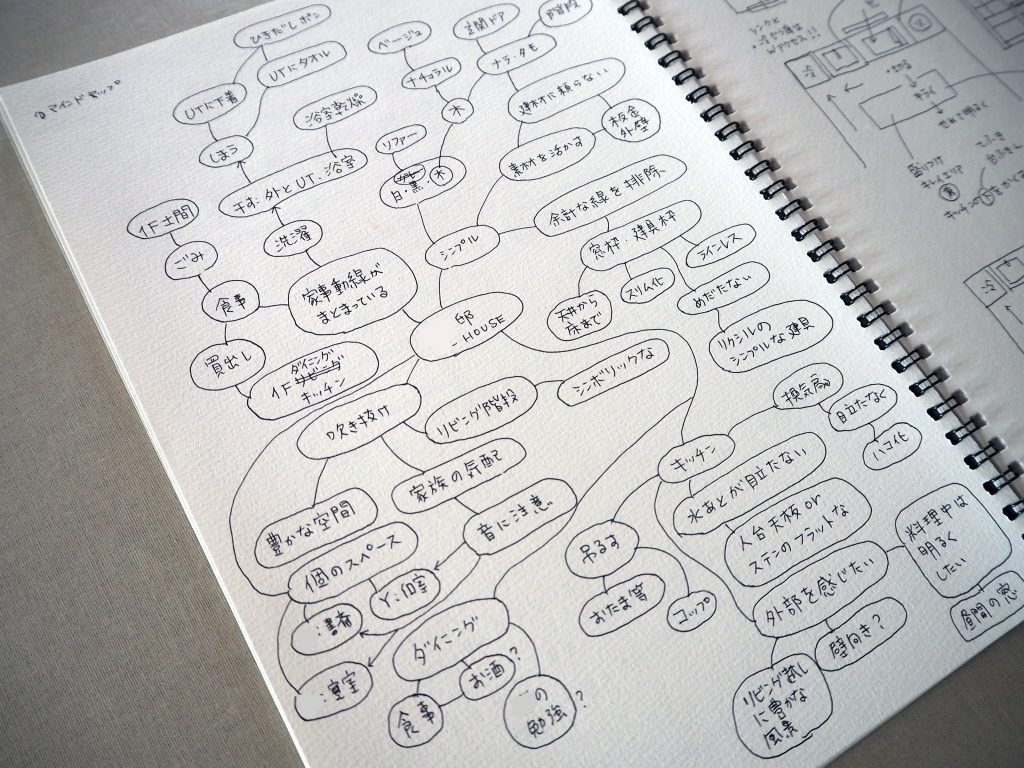 マインドマップ
ひきだしポン
UTにタオル
UTに下着
しまう
浴室乾燥
干す:外とUT・浴室
洗濯
1F土間
ごみ
食事
買出し
家事動線が
まとまっている
ダイニング
1F
キッチン
ベージュ
ナチュラル
木
リファー
白・黒・木
シンプル
玄関ドア
階段
ナラ・タモ
建材に頼らない
板金
外壁
素材を活かす
余計な線を排除
窓枠・建具枠
ラインレス
スリム化
めだたない
天井から
床まで
リクシルの
シンプルな建具
邸
-HOUSE
吹き抜け
リビング階段
シンボリックな
家族の気配
音に注意
豊かな空間
個のスペース
Y:個室
:書斎
:寝室
ダイニング
食事
お酒?
の
勉強?
キッチン
換気扇
目立たなく
ハコ化
水あとが目立たない
人台天板or
ステンのフラットな
吊るす
おたま等
コップ
外部を感じたい
料理中は
明るく
したい
昼間の窓
壁向き?
リビング越し
に豊かな
風景
シンクと
盛りつけ
キレイエリア